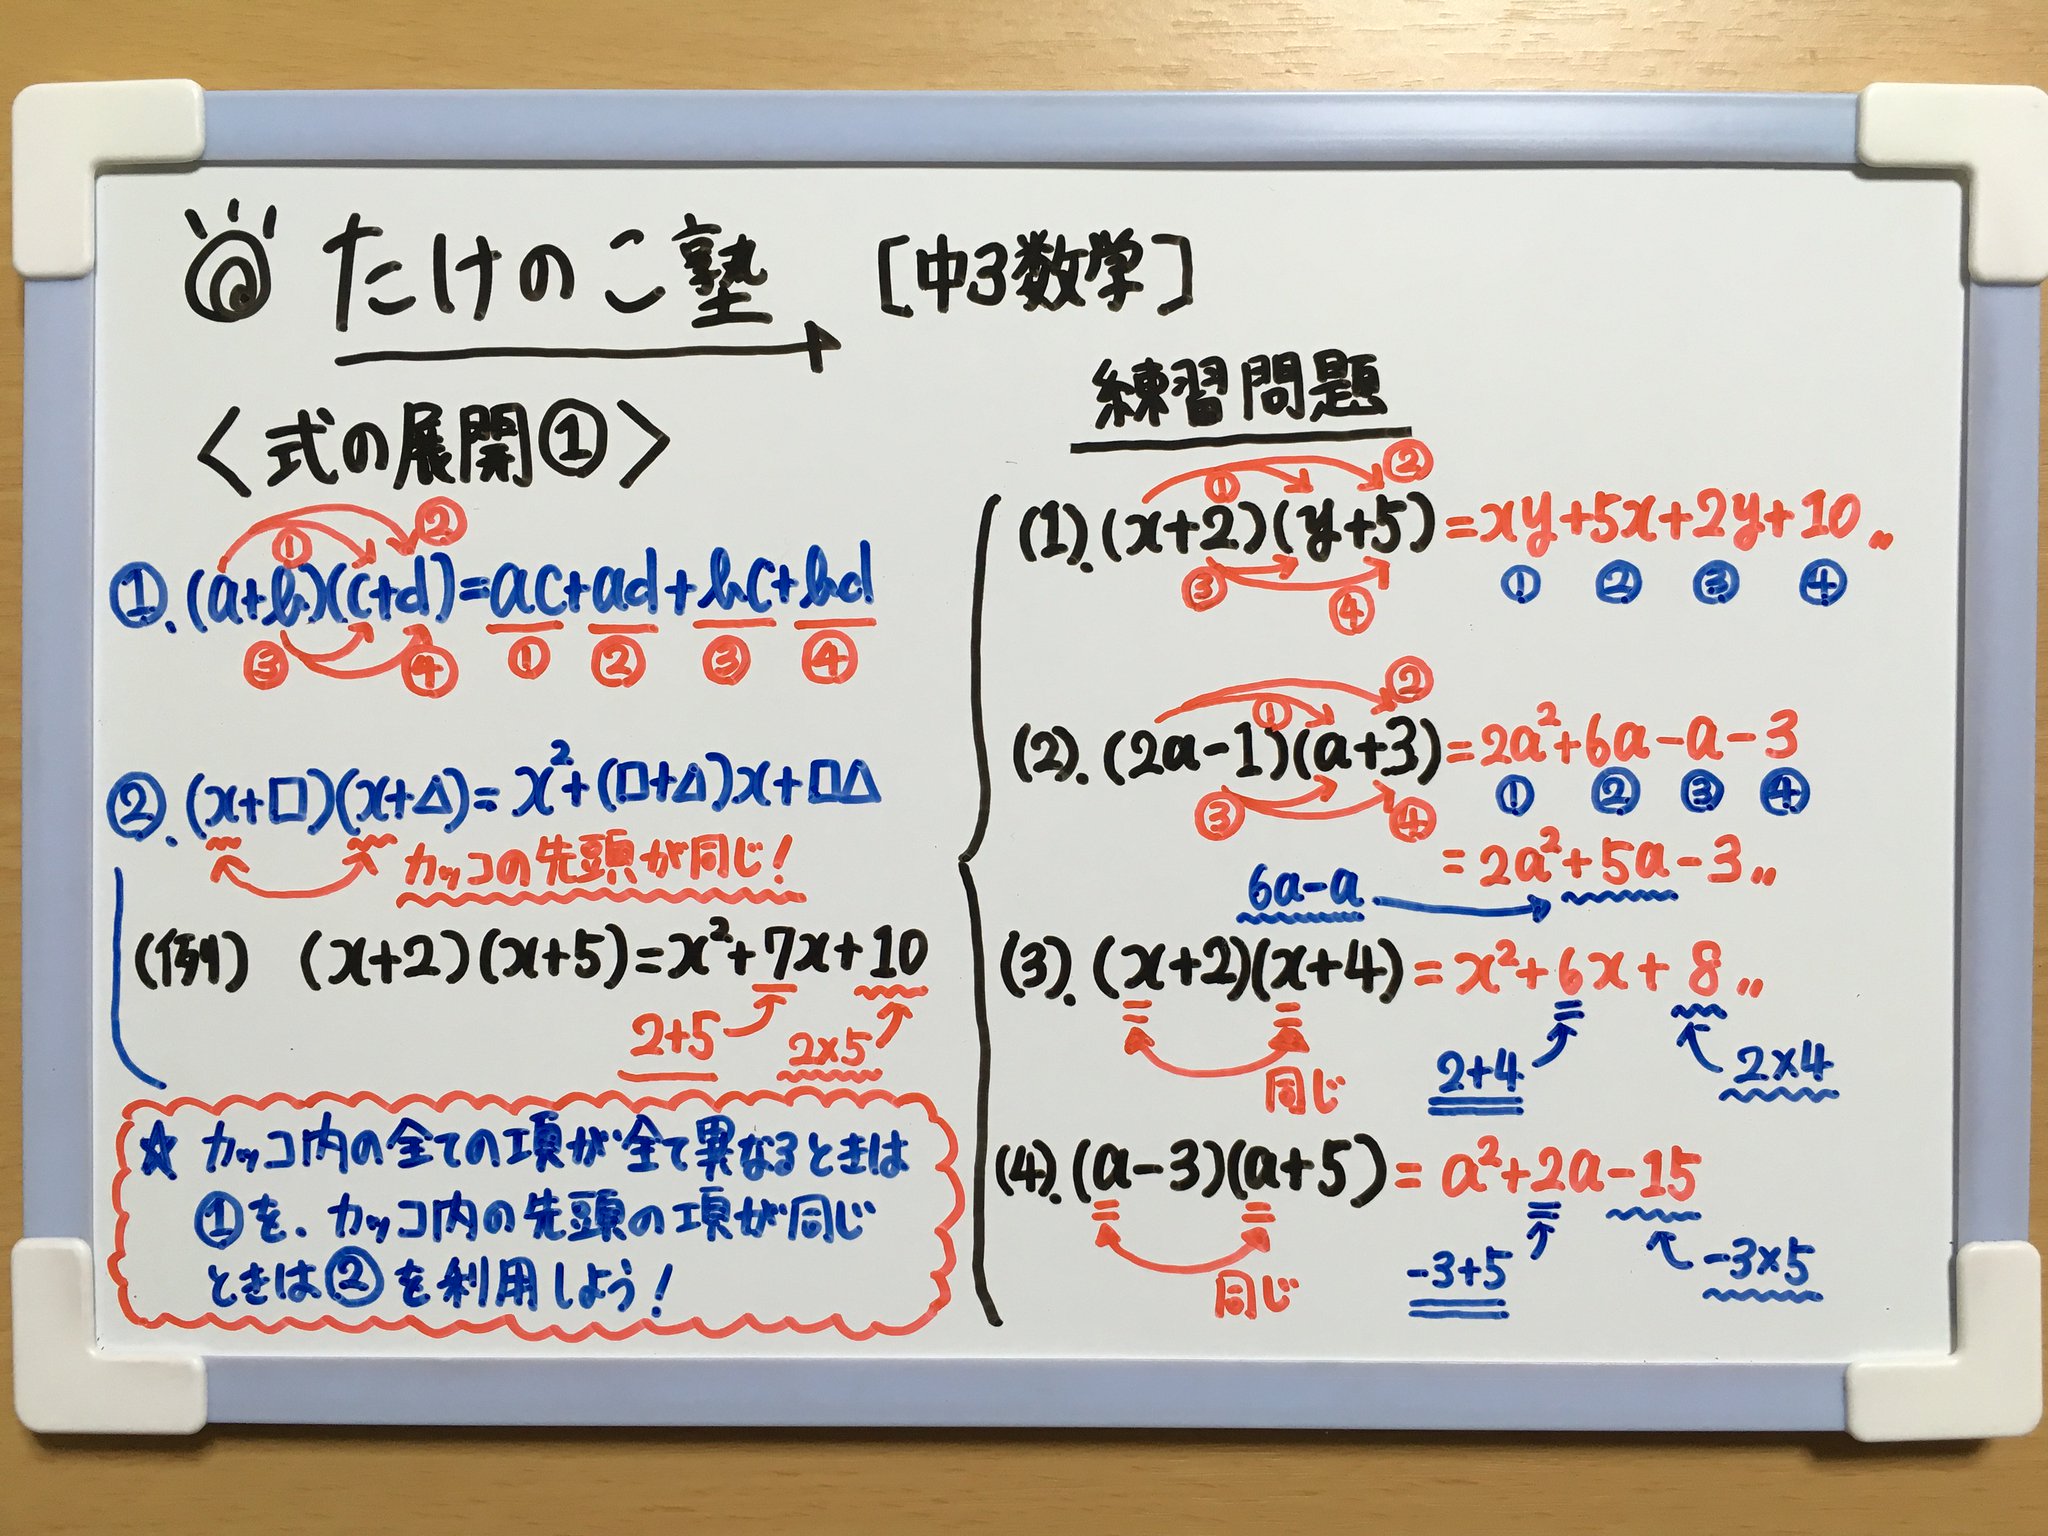 たけのこ塾 [中3数学]
〈式の展開①〉
① ②
①.(a+b)(c+d)=ac+ad+bc+bd
③ ④ ① ② ③ ④
②.(x+□)(x+△)=x²+(□+△)x+□△
カッコの先頭が同じ!
(例) (x+2)(x+5)=x²+7x+10
2+5 2×5
☆ カッコ内の全ての項が全て異なるときは
①を、カッコ内の先頭の項が同じ
ときは②を利用しよう!
練習問題
① ②
(1).(x+2)(y+5)=xy+5x+2y+10〃
③ ④ ① ② ③ ④
① ②
(2).(2a-1)(a+3)=2a²+6a-a-3
③ ④ ① ② ③ ④
=2a²+5a-3〃
6a-a
(3).(x+2)(x+4)=x²+6x+8〃
同じ 2+4 2×4
(4).(a-3)(a+5)=a²+2a-15
同じ -3+5 -3×5